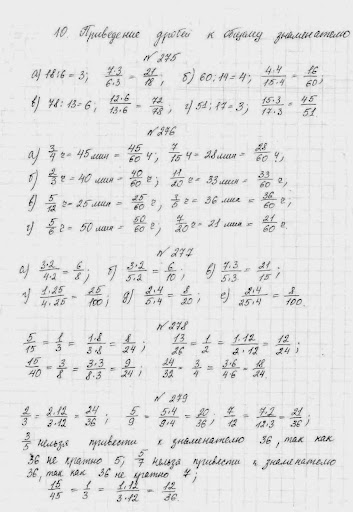 10. Приведение дробей к общему знаменателю
№ 275
а) 18:6 = 3; 7·3/6·3 = 21/18; б) 60:14 = 4; 4·4/15·4 = 16/60;
в) 78:13 = 6; 12·6/13·6 = 72/78; г) 51:17 = 3; 15·3/17·3 = 45/51.
№ 276
а) 3/4 ч = 45 мин = 45/60 ч, 7/15 ч = 28 мин = 28/60 ч;
б) 2/3 ч = 40 мин = 40/60 ч, 11/20 ч = 33 мин = 33/60 ч;
в) 5/12 ч = 25 мин = 25/60 ч, 3/5 ч = 36 мин = 36/60 ч;
г) 5/6 ч = 50 мин = 50/60 ч; 7/20 ч = 21 мин = 21/60 ч.
№ 277
а) 3·2/4·2 = 6/8; б) 3·2/5·2 = 6/10; в) 7·3/5·3 = 21/15;
г) 1·25/4·25 = 25/100; д) 2·4/5·4 = 8/20; е) 2·4/25·4 = 8/100.
№ 278
5/15 = 1/3 = 1·8/3·8 = 8/24; 13/26 = 1/2 = 1·12/2·12 = 12/24;
15/40 = 3/8 = 3·3/8·3 = 9/24; 24/32 = 3/4 = 3·6/4·6 = 18/24
№ 279
2/3 = 2·12/3·12 = 24/36; 5/9 = 5·4/9·4 = 20/36; 7/12 = 7·2/12·3 = 21/36;
3/5 нельзя привести к знаменателю 36, так как
36 не кратно 5; 5/7 нельзя привести к знаменателю
36, так как 36 не кратно 7;
15/45 = 1/3 = 1·12/3·12 = 12/36.